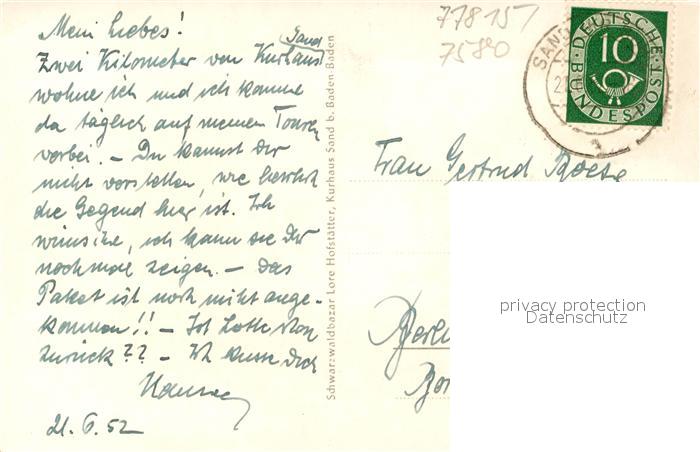 Mein Liebes!
Zwei Kilometer von Kurhaus
Sand
wohne ich und ich komme
da täglich auf meinen Touren
vorbei. – Du kannst Dir
nicht vorstellen, wie herrlich
die Gegend hier ist. Ich
wünsche, ich kann sie Dir
nochmal zeigen. – Das
Paket ist noch nicht ange-
kommen!! – Ist Lotte schon
zurück?? – Ich küsse Dich
21. 6. 52
Schwarzwaldbazar Lore Hofstätter, Kurhaus Sand b. Baden-Baden
778151
75890
SAND
DEUTSCHE
10
BUNDESPOST
Frau Gertrud
Berli
privacy protection
Datenschutz